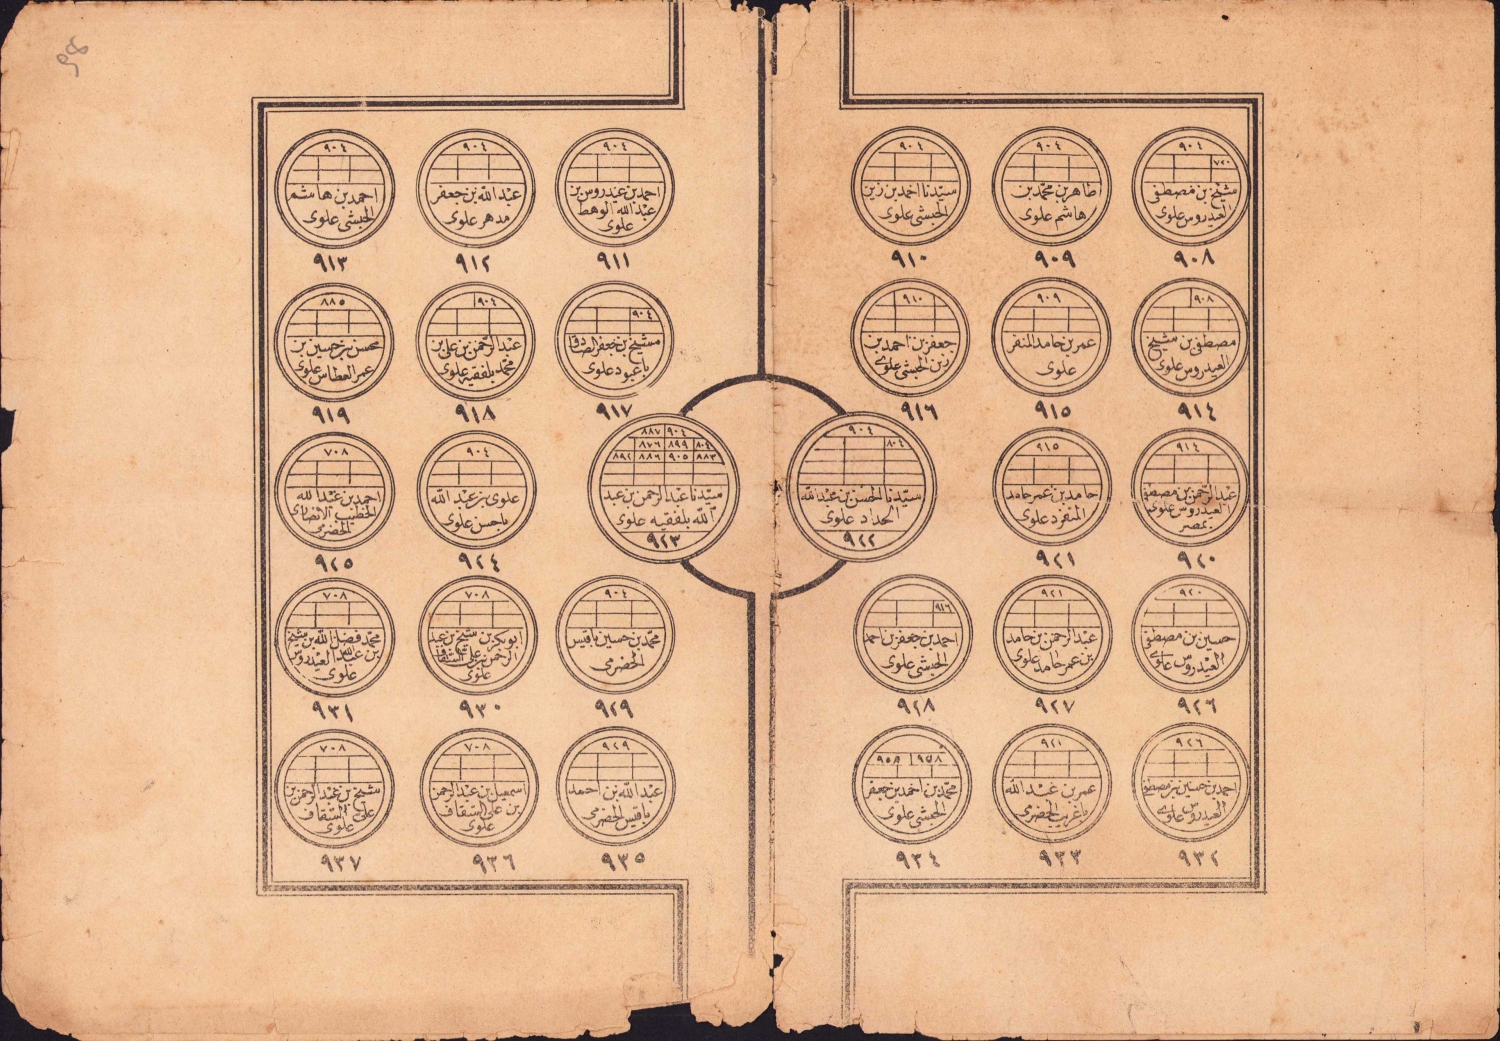 ٩٠٤
٧٢٠
شيخ بن مصطفى
العيدروس علوى
٩٠٨
٩٠٤
طاهر بن محمد بن
هاشم علوى
٩٠٩
٩٠٤
سيدنا احمد بن زين
الحبشى علوى
٩١٠
٩٠٤
احمد بن عيدروس بن
عبد الله الوهط
علوى
٩١١
٩٠٤
عبد الله بن جعفر
مدهر علوى
٩١٢
٩٠٤
احمد بن هاشم
الحبشى علوى
٩١٣
٩٠٨
مصطفى بن شيخ
العيدروس علوى
٩١٤
٩٠٩
عمر بن حامد المنفر
علوى
٩١٥
٩١٠
جعفر بن احمد بن
زين الحبشى علوى
٩١٦
٩٠٤
شيخ بن جعفر الصادق
باعبود علوى
٩١٧
٩٠٤
عبد الرحمن بن على بن
محمد بلفقيه علوى
٩١٨
٨٨٥
محسن بن حسين بن
عمر العطاس علوى
٩١٩
٩١٤
عبد الرحمن بن مصطفى
العيدروس علوى
بمصر
٩٢٠
٩١٥
حامد بن عمر حامد
المنفرد علوى
٩٢١
٩٠٤
٨٠٤
سيدنا الحسن بن عبد الله
الحداد علوى
٩٢٢
٩٠٤ ٨٨٧
٨٠٤ ٨٩٩ ٨٧٦
٨٨٣ ٩٠٥ ٨٨٦ ٨٩٢
سيدنا عبد الرحمن بن عبد
الله بلفقيه علوى
٩٢٣
٩٠٤
علوى بن عبد الله
باحسن علوى
٩٢٤
٧٠٨
احمد بن عبد الله
الخطيب الانصارى
الحضرمى
٩٢٥
٩٢٠
حسين بن مصطفى
العيدروس علوى
٩٢٦
٩٢١
عبد الرحمن بن حامد
بن عمر حامد علوى
٩٢٧
٩١٦
احمد بن جعفر بن احمد
الحبشى علوى
٩٢٨
٩٠٤
محمد بن حسين باقيس
الحضرمى
٩٢٩
٧٠٨
ابوبكر بن شيخ بن عبد
الرحمن بن على السقاف
علوى
٩٣٠
٧٠٨
محمد فضل الله بن شيخ
بن عبد الله العيدروس
علوى
٩٣١
٩٢٦
احمد بن حسين بن مصطفى
العيدروس علوى
٩٣٢
٩٢١
عمر بن عبد الله
باغريب الحضرمى
٩٣٣
٩٥٨ ٩٥٨
محمد بن احمد بن جعفر
الحبشى علوى
٩٣٤
٩٢٩
عبد الله بن احمد
باقيس الحضرمى
٩٣٥
٧٠٨
اسمعيل بن عبد الرحمن
بن على السقاف
علوى
٩٣٦
٧٠٨
شيخ بن عبد الرحمن بن
على السقاف
علوى
٩٣٧